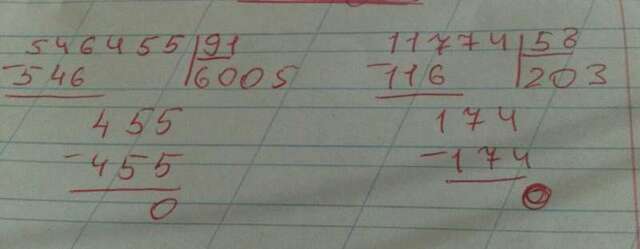 546455 | 91
-546 | 6005
455
-455
0
11774 | 58
-116 | 203
174
-174
0